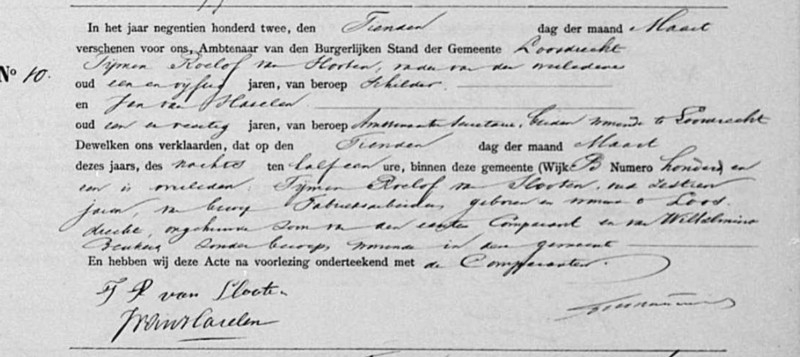 In het jaar negentien honderd twee, den Tienden dag der maand Maart
verschenen voor ons, Ambtenaar van den Burgerlijken Stand der Gemeente Loosdrecht
Tijmen Roelof van Slooten, vader van den overledene
No 10. oud een en vijftig jaren, van beroep Schilder
en Jan van Harelen
oud een en veertig jaren, van beroep Ambtenaar Secretarie, beiden wonende te Loosdrecht
Dewelken ons verklaarden, dat op den Tienden dag der maand Maart
dezes jaars, des nachts ten half een ure, binnen deze gemeente (Wijk B Numero honderd en
een is overleden: Tijmen Roelof van Slooten, oud zestien
jaren, van beroep Fabrieksarbeider, geboren en wonende te Loos-
drecht, ongehuwde zoon van den eersten Comparant en van Wilhelmina
zonder beroep, wonende in deze gemeente
En hebben wij deze Acte na voorlezing onderteekend met de Comparanten.
T R van Slooten
J van Harelen